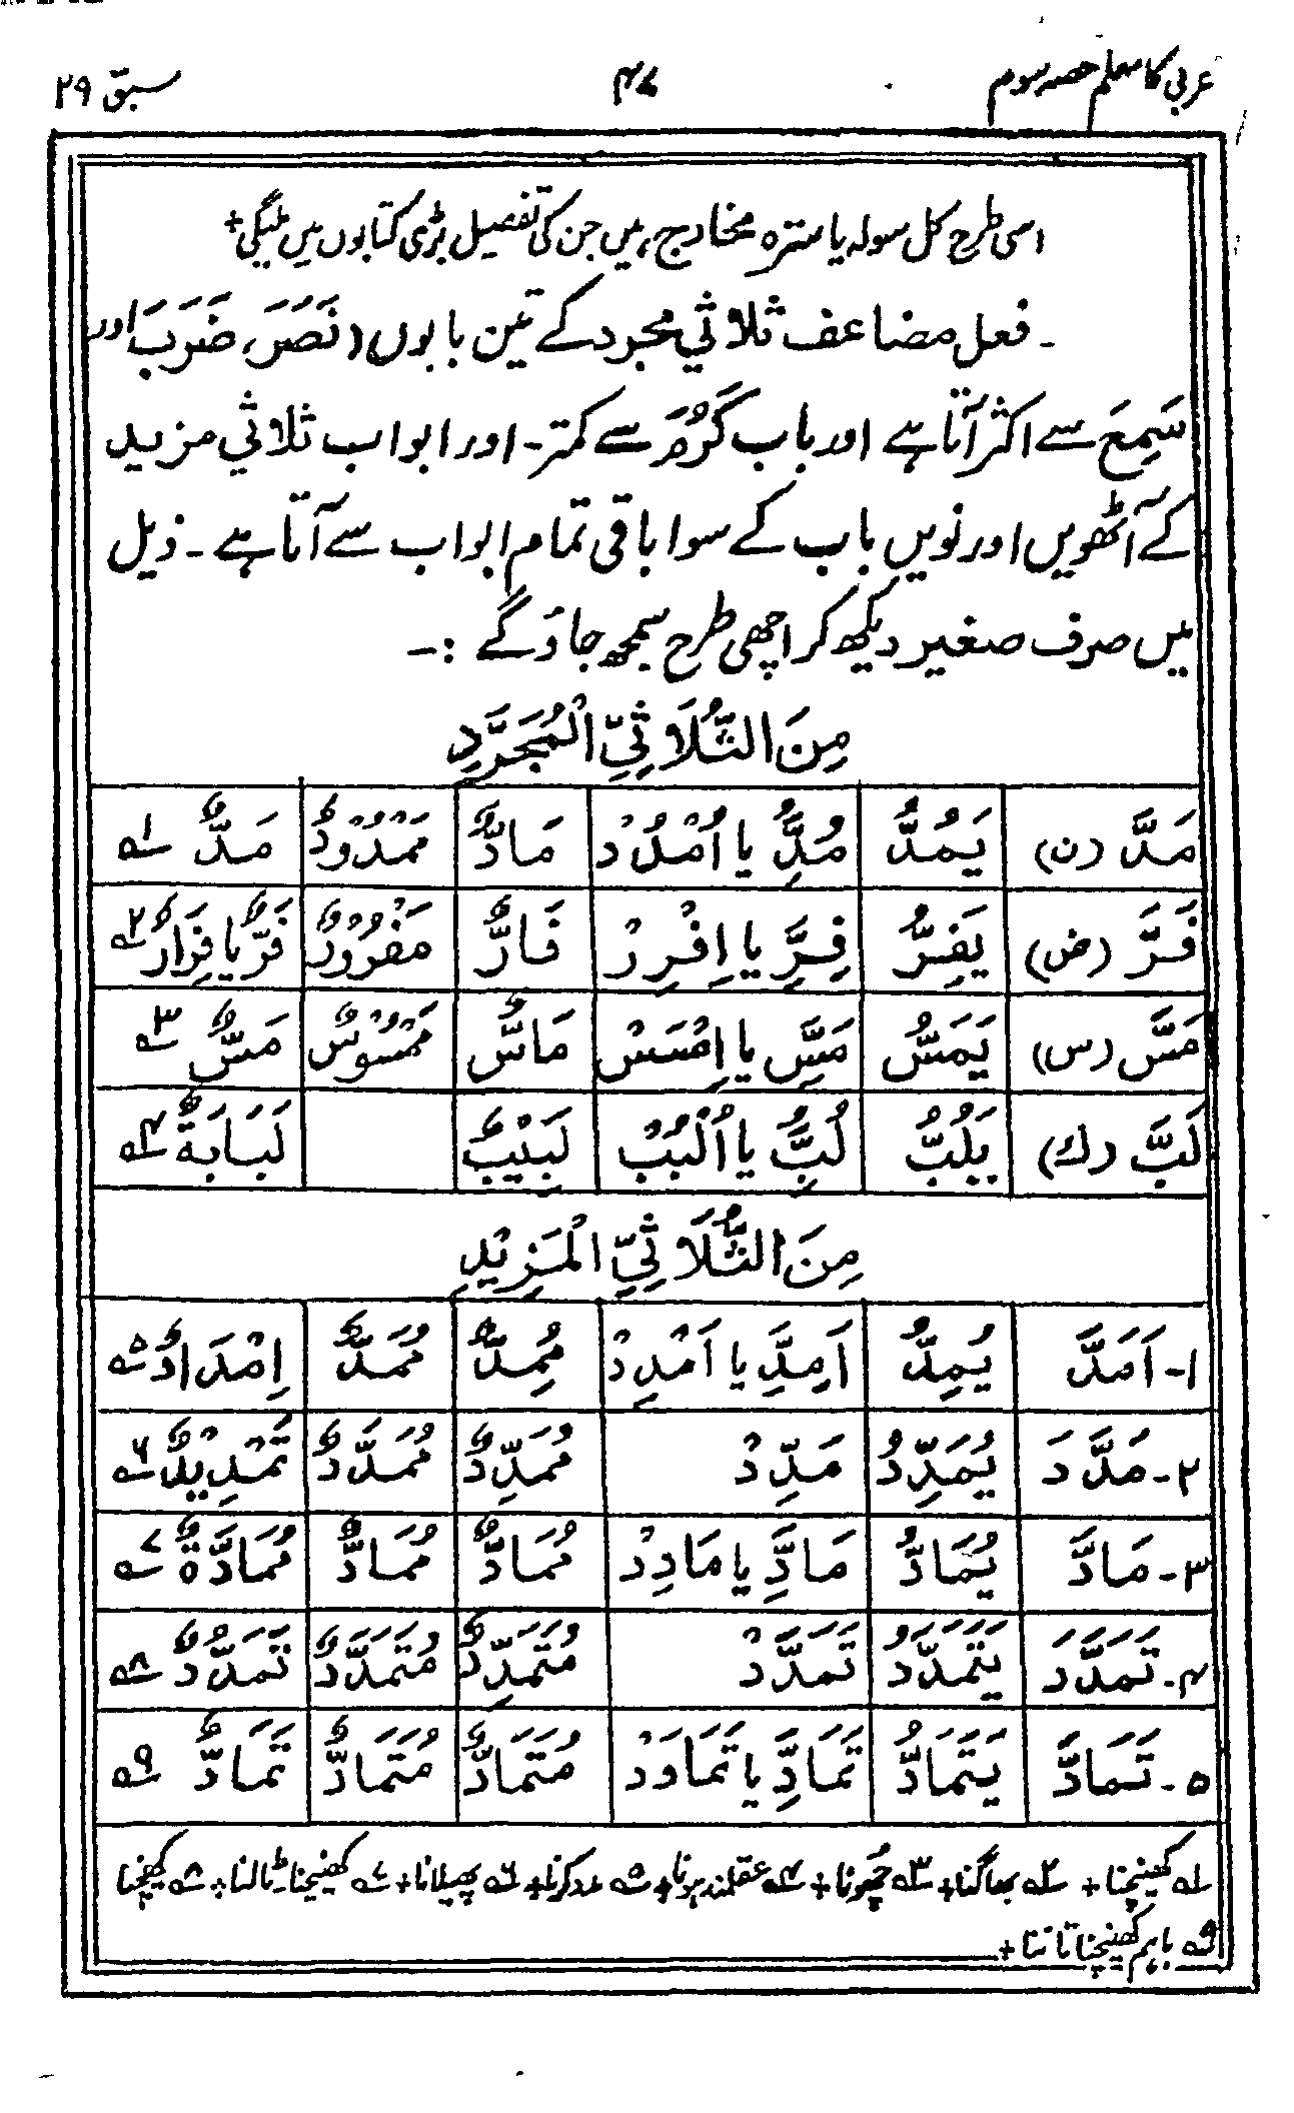 عربی کا معلم حصہ سوم ۴۷ سبق ۲۹
اسی طرح کل سولہ یا سترہ مخارج ہیں جن کی تفصیل بڑی کتابوں میں ملیگی+
۔ فعل مضاعف ثلاثي مجرد کے تین بابوں (نَصَرَ، ضَرَبَ اور
سَمِعَ سے اکثر آتا ہے اور باب كَرُمَ سے کمتر۔ اور ابواب ثلاثي مزید
کے آٹھویں اور نویں باب کے سوا باقی تمام ابواب سے آتا ہے ۔ ذیل
میں صرف صغیر دیکھ کر اچھی طرح سمجھ جاؤ گے :۔
مِنَ الثُّلَاثِيِّ الْمُجَرَّدِ
مَدَّ (ن) يَمُدُّ مُدَِّ یا اُمْدُدْ مَادٌّ مَمْدُوْدٌ مَدٌّ ۱؎
فَرَّ (ض) يَفِرُّ فِرَِّ یا اِفْرِرْ فَارٌّ مَفْرُوْرٌ فَرٌّ یا فِرَارٌ ۲؎
مَسَّ (س) يَمَسُّ مَسَِّ یا اِمْسَسْ مَاسٌّ مَمْسُوْسٌ مَسٌّ ۳؎
لَبَّ (ك) يَلُبُّ لُبَُِّ یا اُلْبُبْ لَبِيْبٌ لَبَابَةٌ ۴؎
مِنَ الثُّلَاثِيِّ الْمَزِيْدِ
۱- اَمَدَّ يُمِدُّ اَمِدَِّ یا اَمْدِدْ مُمِدٌّ مُمَدٌّ اِمْدَادٌ ۵؎
۲- مَدَّدَ يُمَدِّدُ مَدِّدْ مُمَدِّدٌ مُمَدَّدٌ تَمْدِيْدٌ ۶؎
۳- مَادَّ يُمَادُّ مَادَِّ یا مَادِدْ مُمَادٌّ مُمَادٌّ مُمَادَّةٌ ۷؎
۴- تَمَدَّدَ يَتَمَدَّدُ تَمَدَّدْ مُتَمَدِّدٌ مُتَمَدَّدٌ تَمَدُّدٌ ۸؎
۵- تَمَادَّ يَتَمَادُّ تَمَادَِّ یا تَمَاوَدْ مُتَمَادٌّ مُتَمَادٌّ تَمَادٌّ ۹؎
۱؎ کھینچنا+ ۲؎ بھاگنا+ ۳؎ چھُونا+ ۴؎ عقلمند ہونا+ ۵؎ مدد کرنا+ ۶؎ پھیلانا+ ۷؎ کھینچنا۔ ٹالنا+ ۸؎ کھنچنا
۹؎ باہم کھینچنا تاننا+